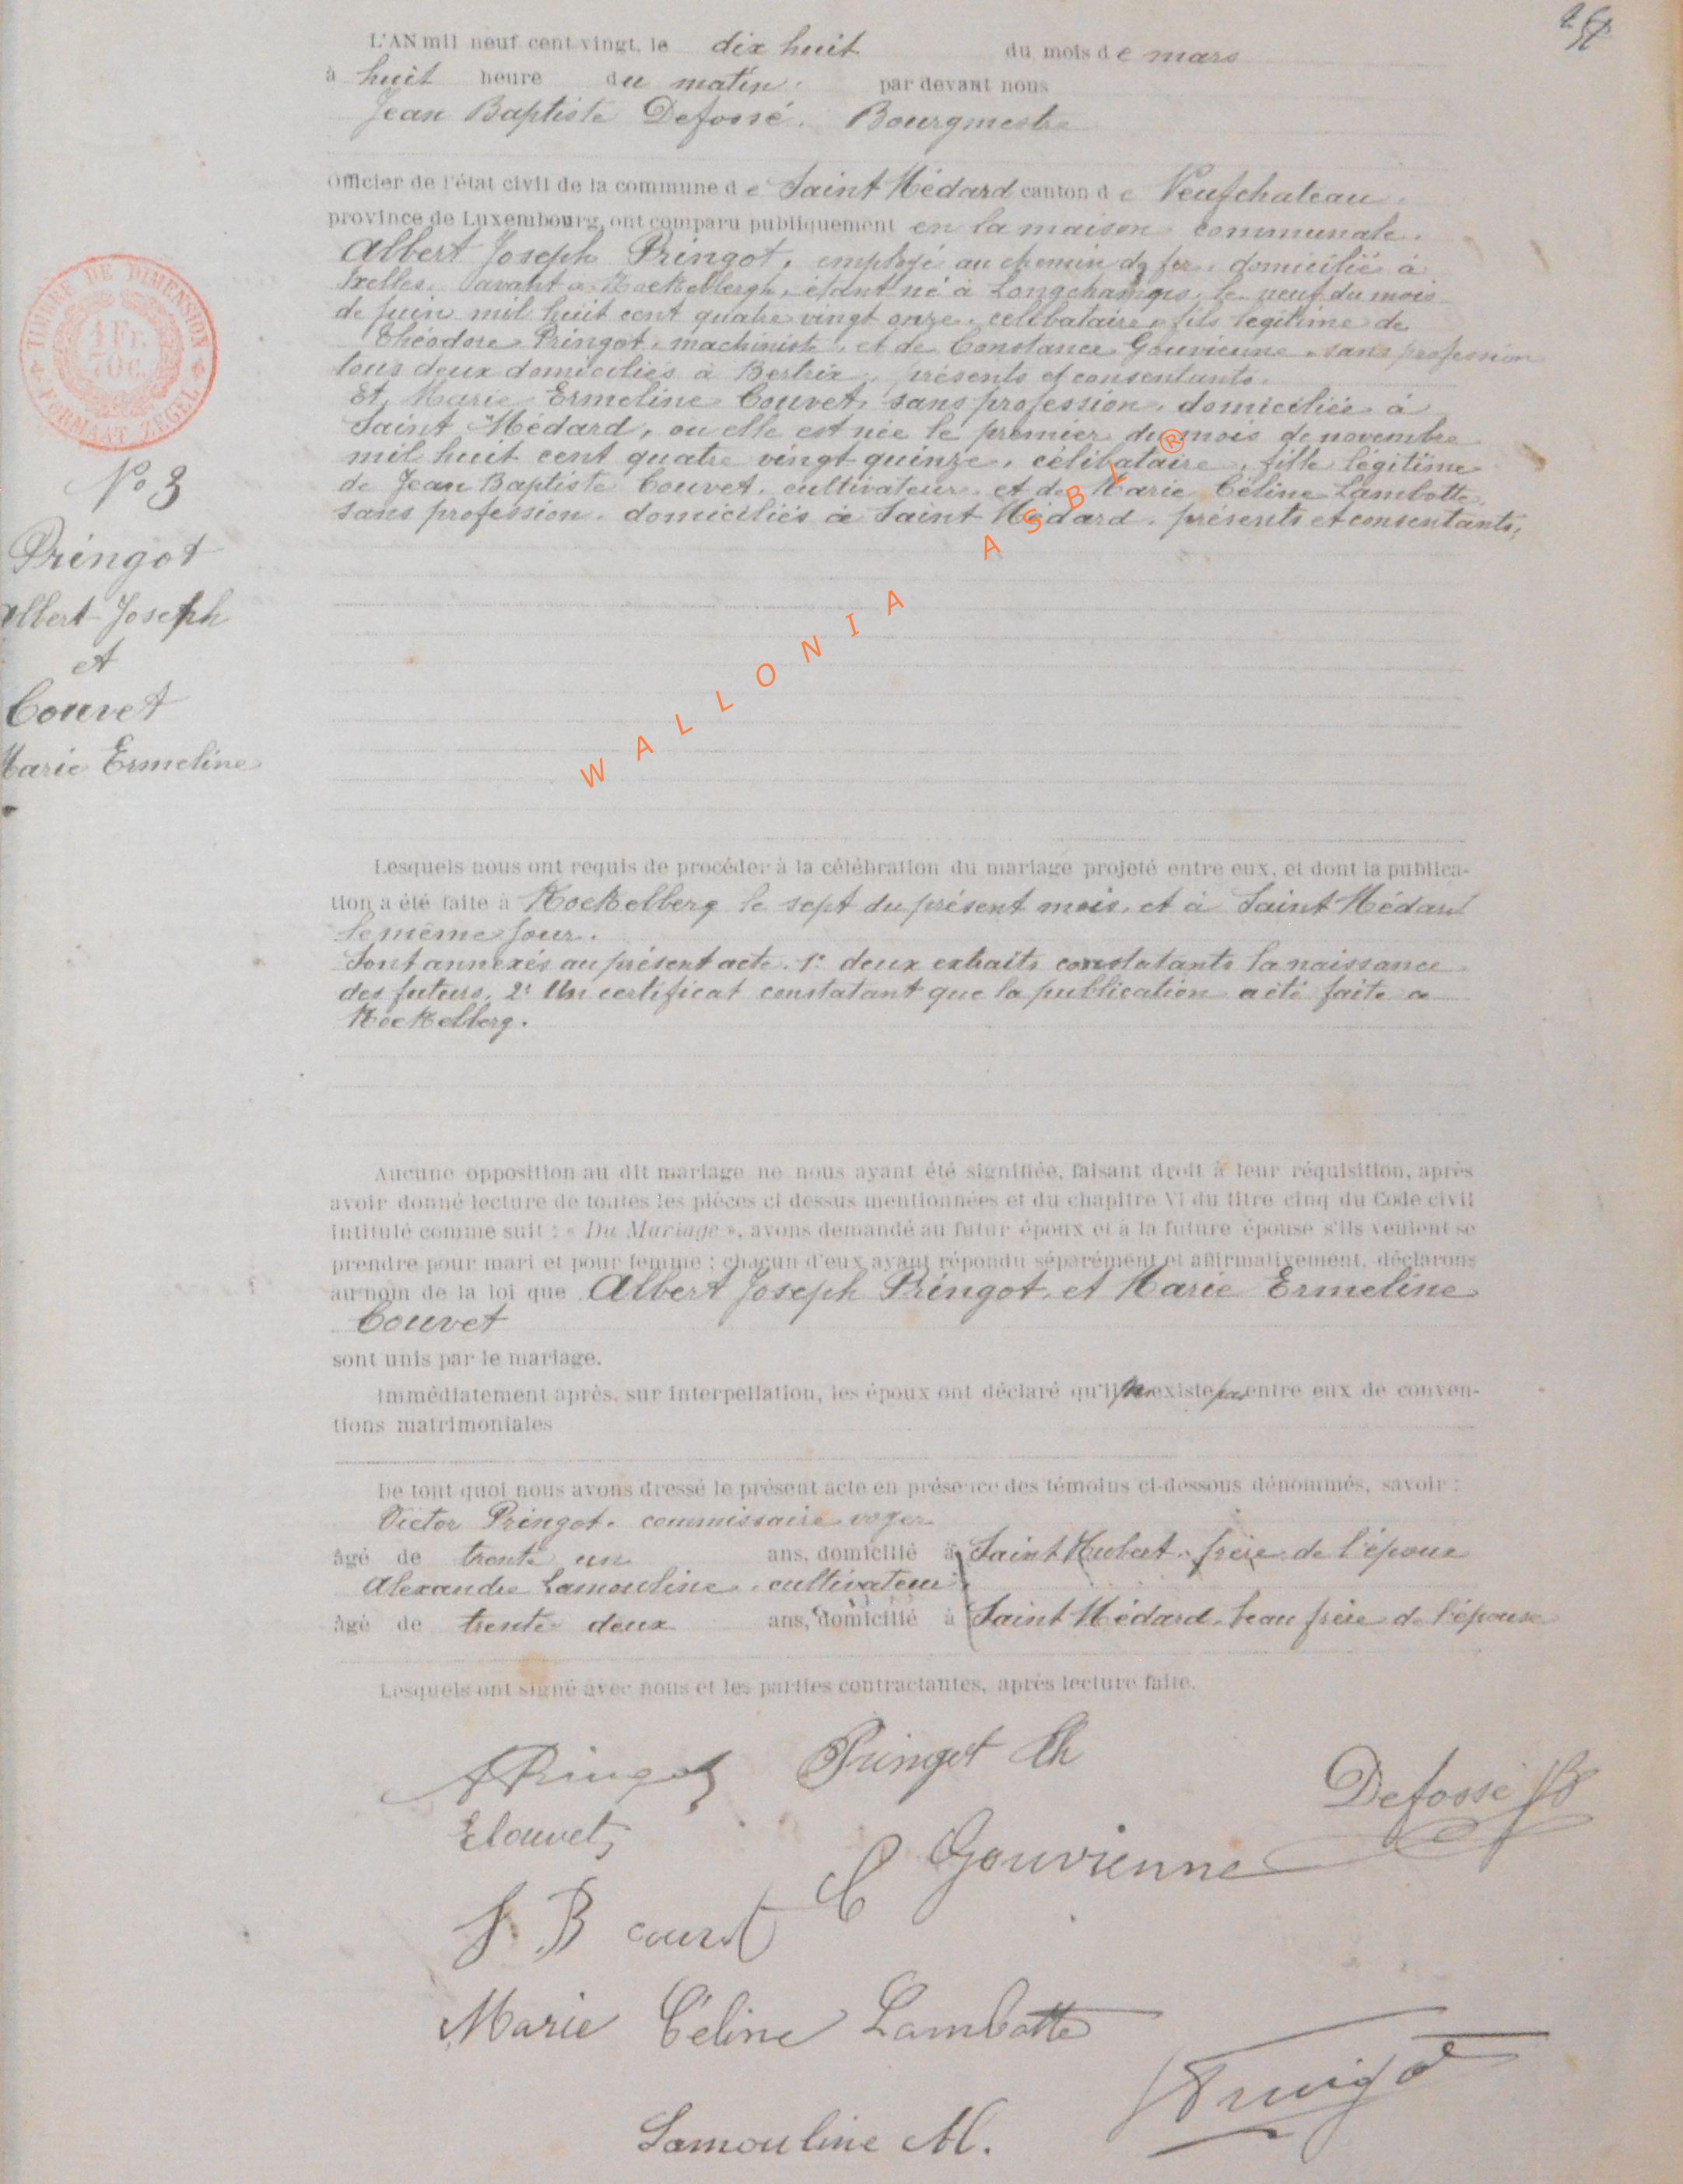 L'AN mil neuf cent vingt, le dix huit du mois de mars
à huit heure du matin. par devant nous
Jean Baptiste Defossé. Bourgmestre
Officier de l'état civil de la commune de Saint Médard canton de Neufchateau.
province de Luxembourg, ont comparu publiquement en la maison communale.
Albert Joseph Pringot, employé au chemin de fer, domicilié à
Ixelles, avant à Koekelbergh, étant né à Longchamps, le neuf du mois
de juin mil huit cent quatre vingt onze, célibataire, fils légitime de
Théodore Pringot, machiniste, et de Constance Gouvienne, sans profession
tous deux domiciliés à Bertrix, présents et consentants.
Et, Marie Ermeline Couvet, sans profession, domiciliée à
Saint Médard, ou elle est née le premier du mois de novembre
mil huit cent quatre vingt quinze, célibataire, fille légitime
de Jean Baptiste Couvet, cultivateur, et de Marie Céline Lambotte,
sans profession, domiciliés à Saint Médard, présents et consentants,
TIMBRE DE DIMENSION
1 Fr.
70 C.
FORMAAT ZEGEL
No 3
Pringot
Albert Joseph
et
Couvet
Marie Ermeline
WALLONIA ASBL ®
Lesquels nous ont requis de procéder à la célébration du mariage projeté entre eux, et dont la publica-
tion a été faite à Koekelberg le sept du présent mois, et à Saint Médard
le même jour.
Sont annexés au présent acte. 1° deux extraits constatants la naissance
des futurs, 2° Un certificat constatant que la publication a été faite a
Koekelberg.
Aucune opposition au dit mariage ne nous ayant été signifiée, faisant droit à leur réquisition, après
avoir donné lecture de toutes les pièces ci dessus mentionnées et du chapitre VI du titre cinq du Code civil
intitulé comme suit : « Du Mariage », avons demandé au futur époux et à la future épouse s'ils veulent se
prendre pour mari et pour femme ; chacun d'eux ayant répondu séparément et affirmativement, déclarons
au nom de la loi que Albert Joseph Pringot, et Marie Ermeline
Couvet
sont unis par le mariage.
Immédiatement après, sur interpellation, les époux ont déclaré qu'il n'existe pas entre eux de conven-
tions matrimoniales
De tout quoi nous avons dressé le présent acte en présence des témoins ci-dessous dénommés, savoir :
Victor Pringot. commissaire voyer
âgé de trente un ans, domicilié à Saint Hubert, frère de l'époux
Alexandre Lamouline, cultivateur,
âgé de trente deux ans, domicilié à Saint Médard, beau frère de l'épouse
Lesquels ont signé avec nous et les parties contractantes, après lecture faite.
APringot Pringot Th
Defossé JB
ECouvet
C Gouvienne
J. B couvet
Marie Céline Lambotte
Pringot
Lamouline Al.